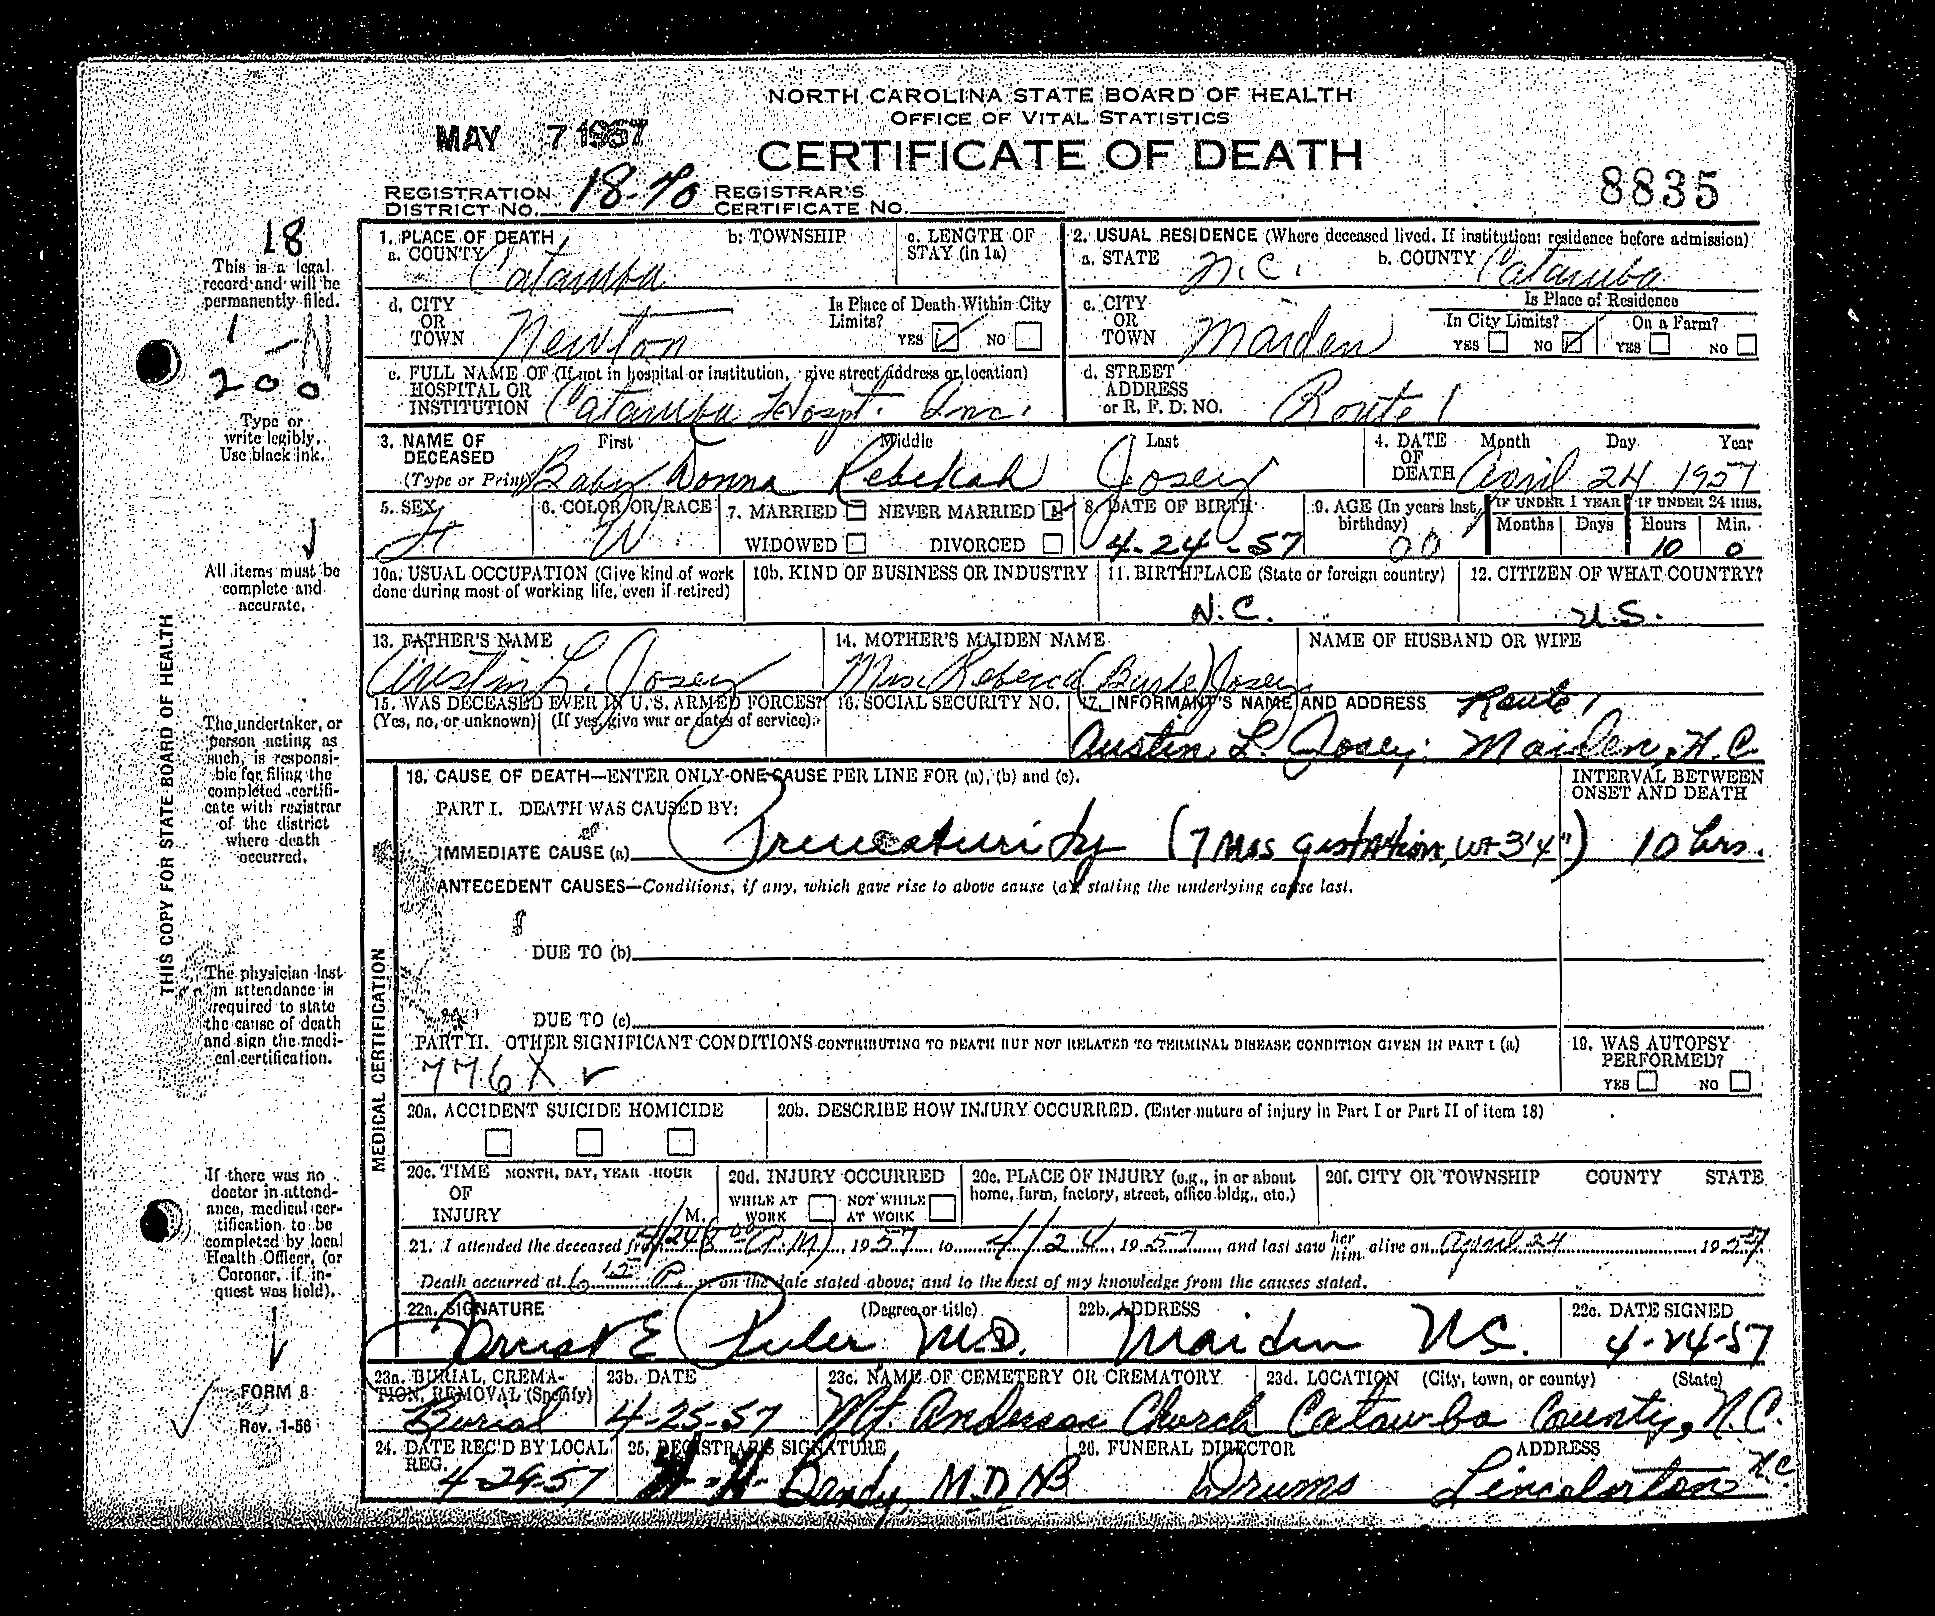 NORTH CAROLINA STATE BOARD OF HEALTH
OFFICE OF VITAL STATISTICS
MAY 7 1957
CERTIFICATE OF DEATH
REGISTRATION DISTRICT NO. 18-70 REGISTRAR'S CERTIFICATE NO.
8835
18
This is a legal
record and will be
permanently filed.
1 -N
200
Type or
write legibly.
Use black ink.
All items must be
complete and
accurate.
THIS COPY FOR STATE BOARD OF HEALTH
The undertaker, or
person acting as
such, is responsi-
ble for filing the
completed certifi-
cate with registrar
of the district
where death
occurred.
The physician last
in attendance is
required to state
the cause of death
and sign the medi-
cal certification.
If there was no
doctor in attend-
ance, medical cer-
tification to be
completed by local
Health Officer, (or
Coroner, if in-
quest was held).
FORM 8
Rev. 1-56
1. PLACE OF DEATH
a. COUNTY Catawba
b. TOWNSHIP
c. LENGTH OF STAY (in 1a)
2. USUAL RESIDENCE (Where deceased lived. If institution: residence before admission)
a. STATE N.C. b. COUNTY Catawba
d. CITY OR TOWN Newton
Is Place of Death Within City Limits? YES NO
c. CITY OR TOWN Maiden
Is Place of Residence
In City Limits? YES NO On a Farm? YES NO
e. FULL NAME OF (If not in hospital or institution, give street address or location)
HOSPITAL OR INSTITUTION Catawba Hospt. Inc.
d. STREET ADDRESS or R. F. D. NO. Route 1
3. NAME OF DECEASED (Type or Print) First Middle Last
Baby Donna Rebekah Josey
4. DATE OF DEATH Month Day Year
April 24 1957
5. SEX F
6. COLOR OR RACE W
7. MARRIED NEVER MARRIED
WIDOWED DIVORCED
8. DATE OF BIRTH 4-24-57
9. AGE (In years last birthday) 00
IF UNDER 1 YEAR Months Days
IF UNDER 24 HRS. Hours Min.
10 0
10a. USUAL OCCUPATION (Give kind of work done during most of working life, even if retired)
10b. KIND OF BUSINESS OR INDUSTRY
11. BIRTHPLACE (State or foreign country) N.C.
12. CITIZEN OF WHAT COUNTRY? U.S.
13. FATHER'S NAME
Austin L. Josey
14. MOTHER'S MAIDEN NAME
Mrs. Rebecca Josey
NAME OF HUSBAND OR WIFE
15. WAS DECEASED EVER IN U.S. ARMED FORCES?
(Yes, no, or unknown) (If yes, give war or dates of service)
16. SOCIAL SECURITY NO.
17. INFORMANT'S NAME AND ADDRESS Route 1
Austin L. Josey. Maiden, N.C.
MEDICAL CERTIFICATION
18. CAUSE OF DEATH—ENTER ONLY ONE CAUSE PER LINE FOR (a), (b) and (c).
INTERVAL BETWEEN ONSET AND DEATH
PART I. DEATH WAS CAUSED BY:
IMMEDIATE CAUSE (a) Prematurity (7 Mos gestation, wt 3'4") 10 hrs.
ANTECEDENT CAUSES—Conditions, if any, which gave rise to above cause (a) stating the underlying cause last.
DUE TO (b)
DUE TO (c)
PART II. OTHER SIGNIFICANT CONDITIONS CONTRIBUTING TO DEATH BUT NOT RELATED TO TERMINAL DISEASE CONDITION GIVEN IN PART I (a)
776X
19. WAS AUTOPSY PERFORMED?
YES NO
20a. ACCIDENT SUICIDE HOMICIDE
20b. DESCRIBE HOW INJURY OCCURRED. (Enter nature of injury in Part I or Part II of item 18)
20c. TIME OF INJURY MONTH, DAY, YEAR HOUR M.
20d. INJURY OCCURRED
WHILE AT WORK NOT WHILE AT WORK
20e. PLACE OF INJURY (e.g., in or about home, farm, factory, street, office bldg., etc.)
20f. CITY OR TOWNSHIP COUNTY STATE
21. I attended the deceased from 4/24 8 00 (A.M), 1957, to 4/24, 1957, and last saw her him alive on April 24 1957
Death occurred at 6 15 P. m on the date stated above; and to the best of my knowledge from the causes stated.
22a. SIGNATURE (Degree or title)
M.D.
22b. ADDRESS
Maiden N.C.
22c. DATE SIGNED
4-24-57
23a. BURIAL, CREMATION, REMOVAL (Specify)
Burial
23b. DATE
4-25-57
23c. NAME OF CEMETERY OR CREMATORY
Mt. Anderson Church
23d. LOCATION (City, town, or county) (State)
Catawba County, N.C.
24. DATE REC'D BY LOCAL REG.
4-29-57
25. REGISTRAR'S SIGNATURE
H. H. Bandy, M.D.
26. FUNERAL DIRECTOR ADDRESS
Drums Lincolnton N.C.